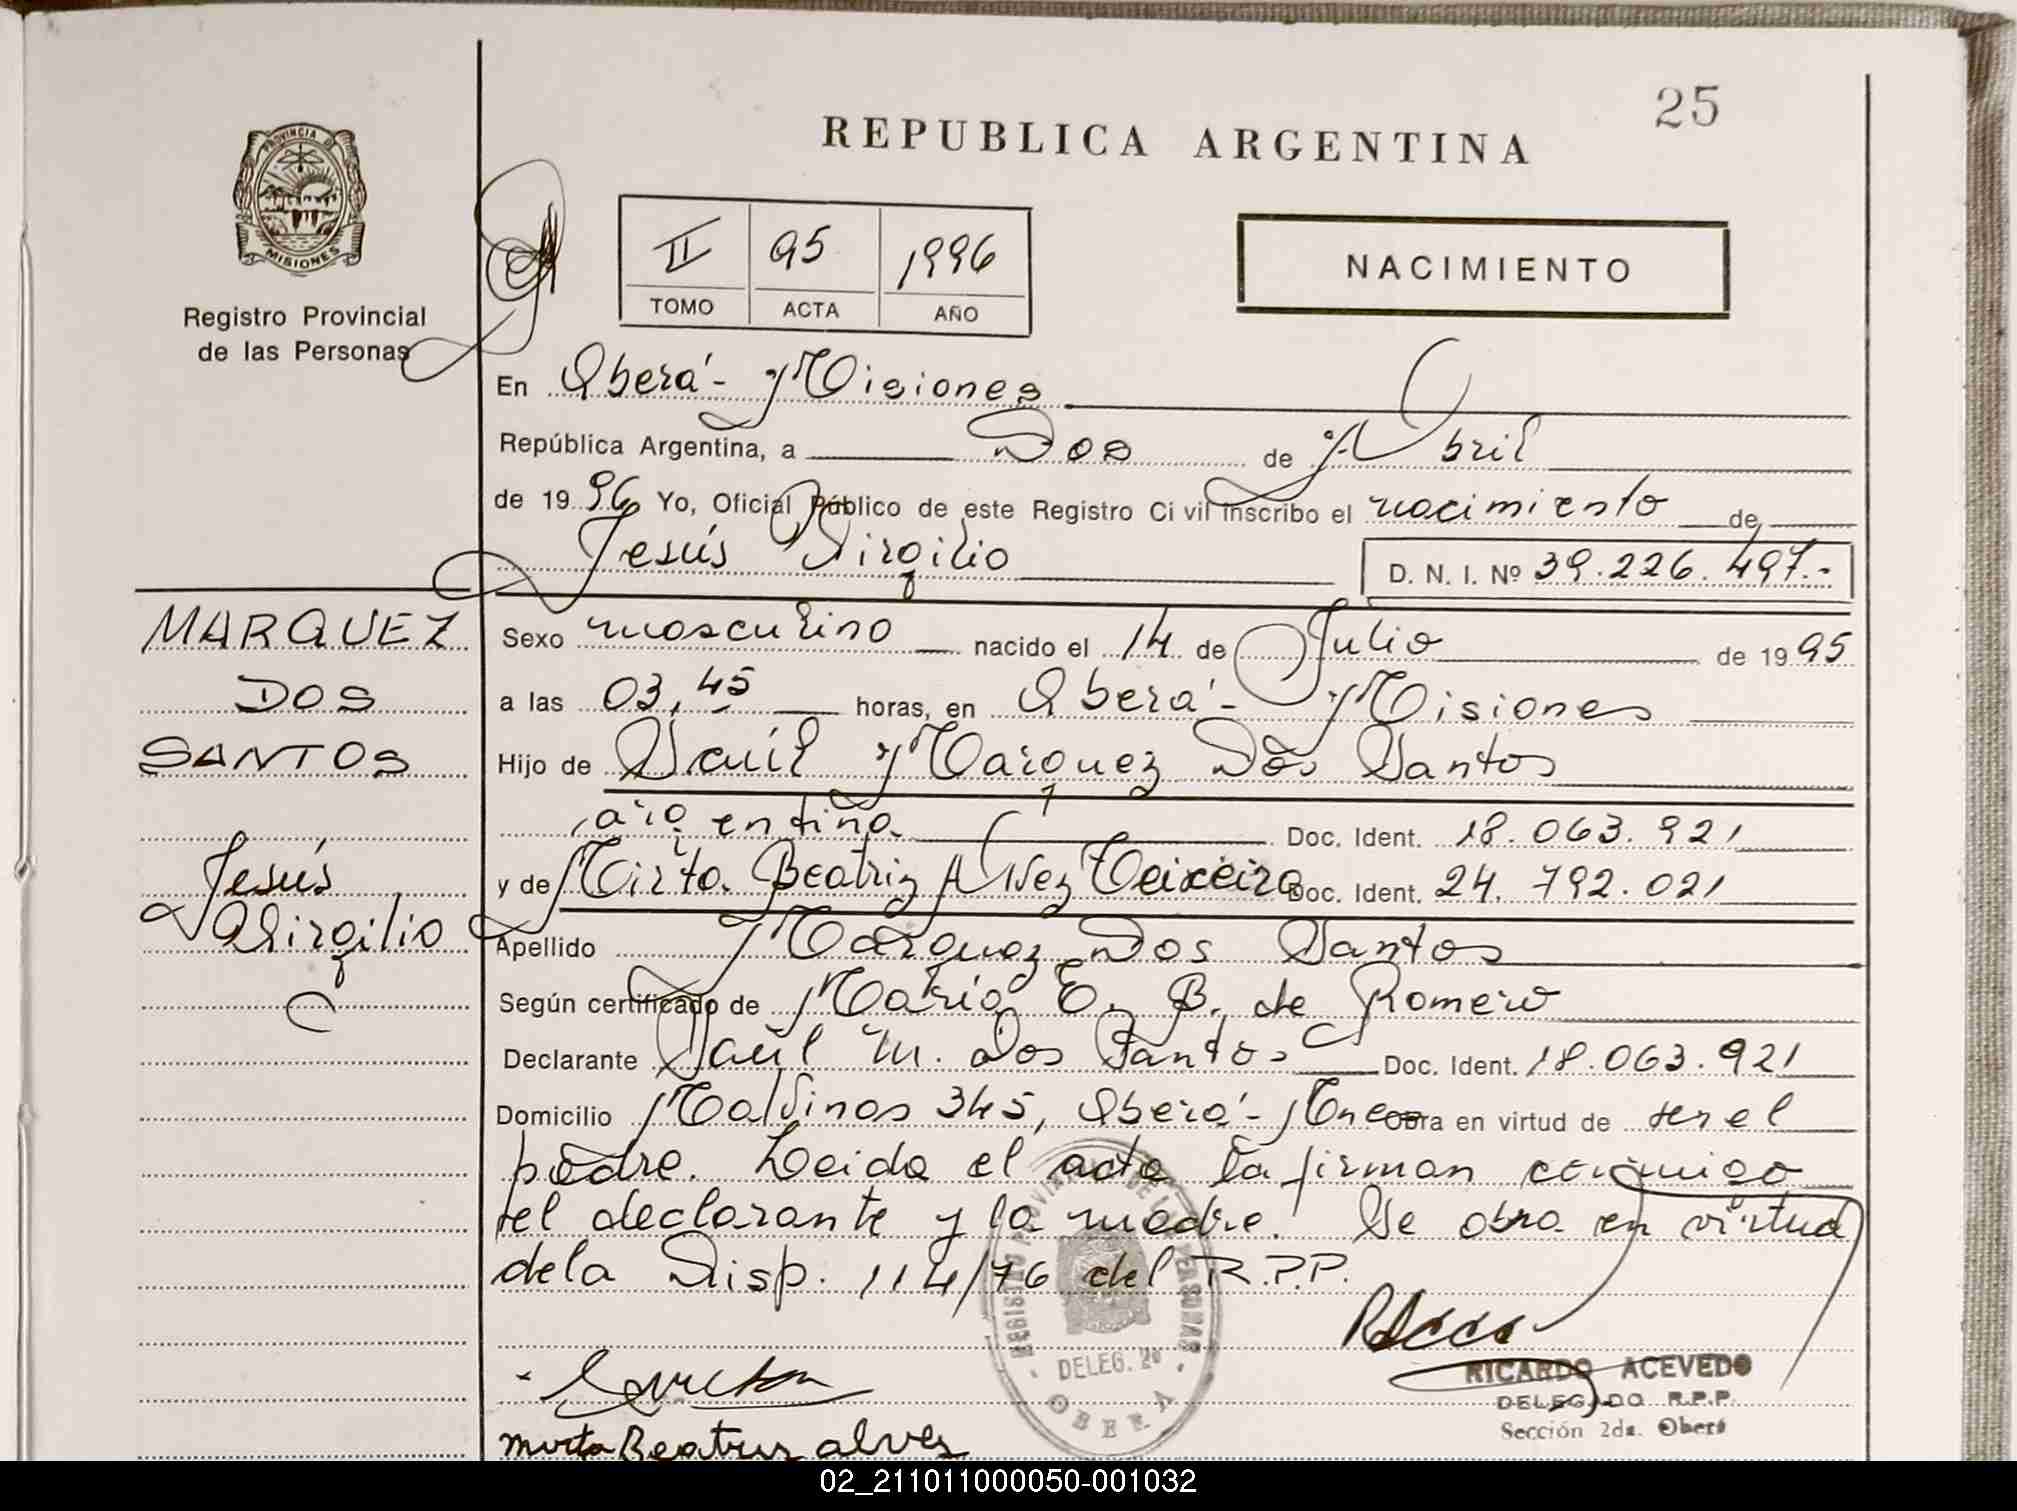 25
REPUBLICA ARGENTINA
PROVINCIA DE
MISIONES
Registro Provincial
de las Personas
II 95 1996
TOMO ACTA AÑO
NACIMIENTO
En Oberá - Misiones
República Argentina, a Dos de Abril
de 1996 Yo, Oficial Público de este Registro Civil inscribo el nacimiento de
Jesús Virgilio D. N. I. Nº 39.226.497.-
MARQUEZ
DOS
SANTOS
Jesús
Virgilio
Sexo masculino nacido el 14 de Julio de 1995
a las 03,45 horas, en Oberá - Misiones
Hijo de Saúl Marquez Dos Santos
, argentino. Doc. Ident. 18.063.921
y de Mirta Beatriz Alvez Teixeira Doc. Ident. 24.792.021
Apellido Marquez Dos Santos
Según certificado de María E. B. de Romero
Declarante Saúl M. Dos Santos Doc. Ident. 18.063.921
Domicilio Malvinas 345, Oberá - Mnes Obra en virtud de ser el
padre. Leida el acta la firman conmigo
el declarante y la madre. Se obra en virtud
de la Disp. 114/76 del R.P.P.
REGISTRO PROVINCIAL DE LAS PERSONAS
DELEG. 2ª
OBERA
RICARDO ACEVEDO
DELEGADO R.P.P.
Sección 2da. Oberá
Mirta Beatriz alves
02_211011000050-001032